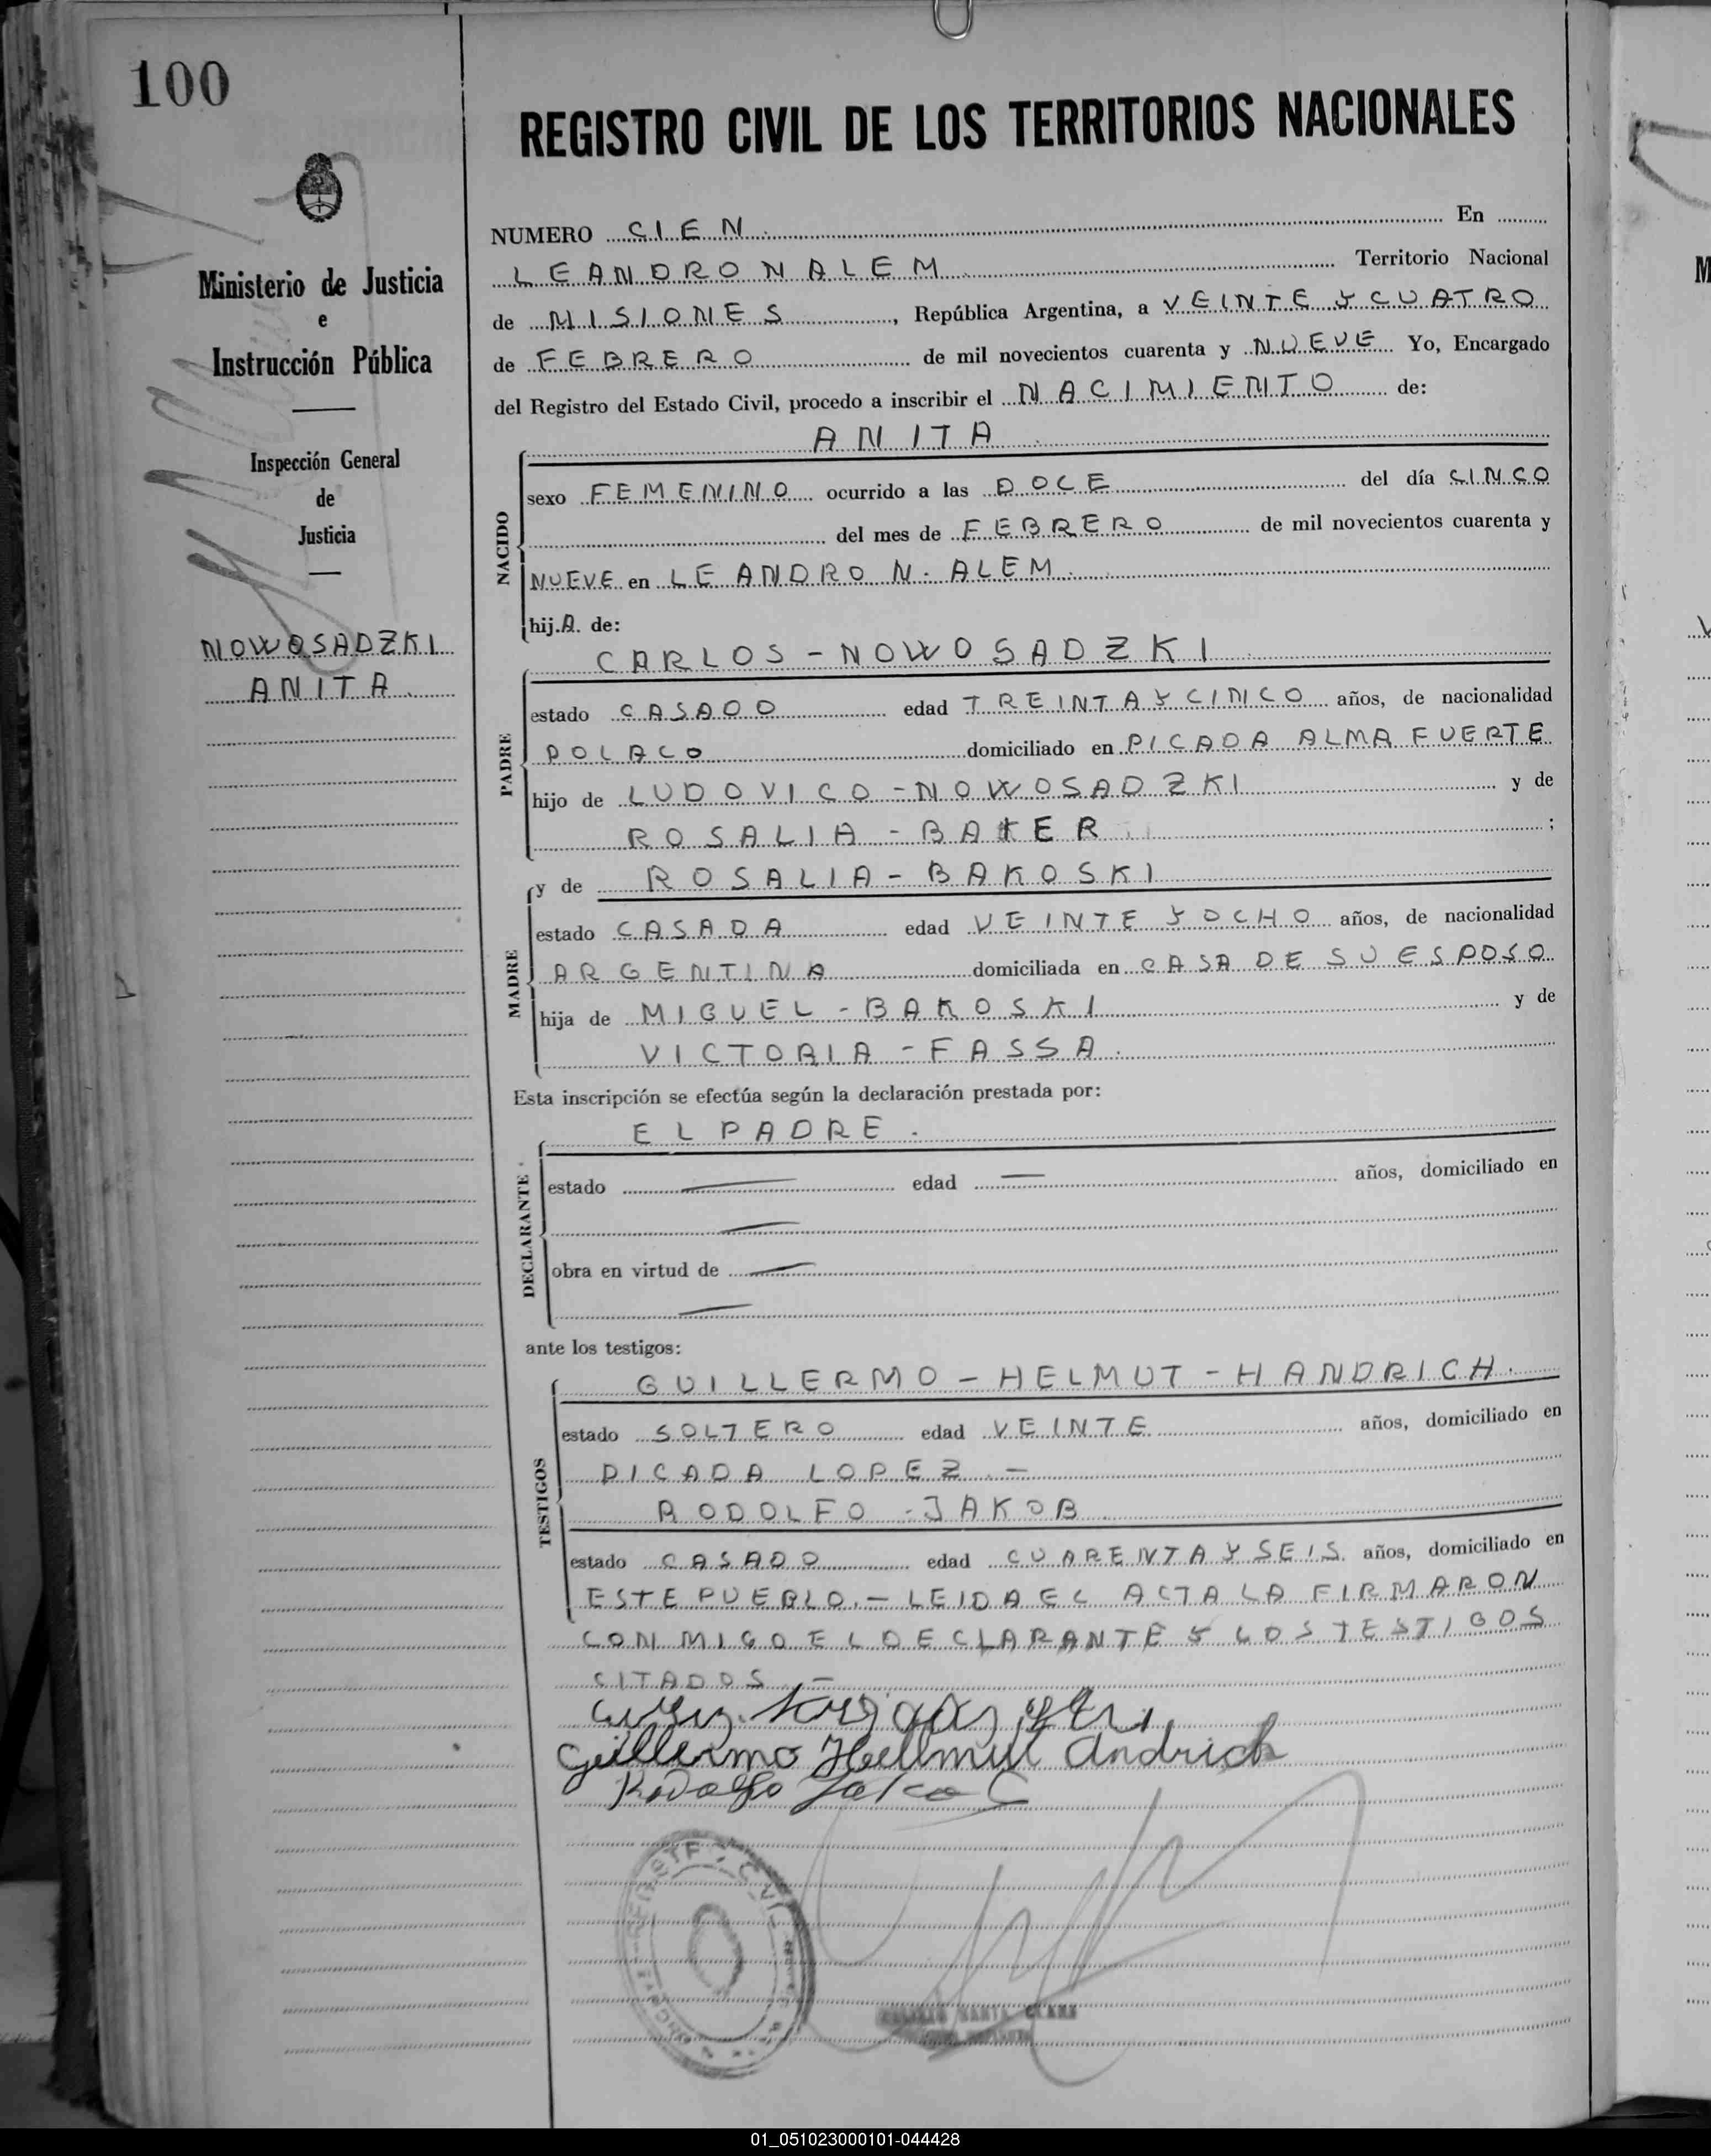 100
REGISTRO CIVIL DE LOS TERRITORIOS NACIONALES
Ministerio de Justicia
e
Instrucción Pública
Inspección General
de
Justicia
NOWOSADZKI
ANITA.
NUMERO CIEN. En
LEANDRO N ALEM. Territorio Nacional
de MISIONES, República Argentina, a VEINTE Y CUATRO
de FEBRERO de mil novecientos cuarenta y NUEVE Yo, Encargado
del Registro del Estado Civil, procedo a inscribir el NACIMIENTO de:
ANITA.
NACIDO
sexo FEMENINO ocurrido a las DOCE del día CINCO
del mes de FEBRERO de mil novecientos cuarenta y
NUEVE en LEANDRO N. ALEM.
hij.A. de:
CARLOS - NOWOSADZKI.
PADRE
estado CASADO edad TREINTA Y CINCO años, de nacionalidad
POLACO domiciliado en PICADA ALMA FUERTE
hijo de LUDOVICO - NOWOSADZKI y de
ROSALIA - BAKER ;
y de ROSALIA - BAKOSKI
MADRE
estado CASADA edad VEINTE Y OCHO años, de nacionalidad
ARGENTINA domiciliada en CASA DE SU ESPOSO
hija de MIGUEL - BAKOSKI y de
VICTORIA - FASSA.
Esta inscripción se efectúa según la declaración prestada por:
EL PADRE.
DECLARANTE
estado — edad — años, domiciliado en
—
obra en virtud de —
—
ante los testigos:
GUILLERMO - HELMUT - HANDRICH.
TESTIGOS
estado SOLTERO edad VEINTE años, domiciliado en
PICADA LOPEZ. -
RODOLFO - JAKOB.
estado CASADO edad CUARENTA Y SEIS años, domiciliado en
ESTE PUEBLO. - LEIDA EL ACTA LA FIRMARON
CON MIGO EL DECLARANTE Y LOS TESTIGOS
CITADOS. -
Guillermo Hellmut Andrich
Rodolfo Jakob
01_051023000101-044428